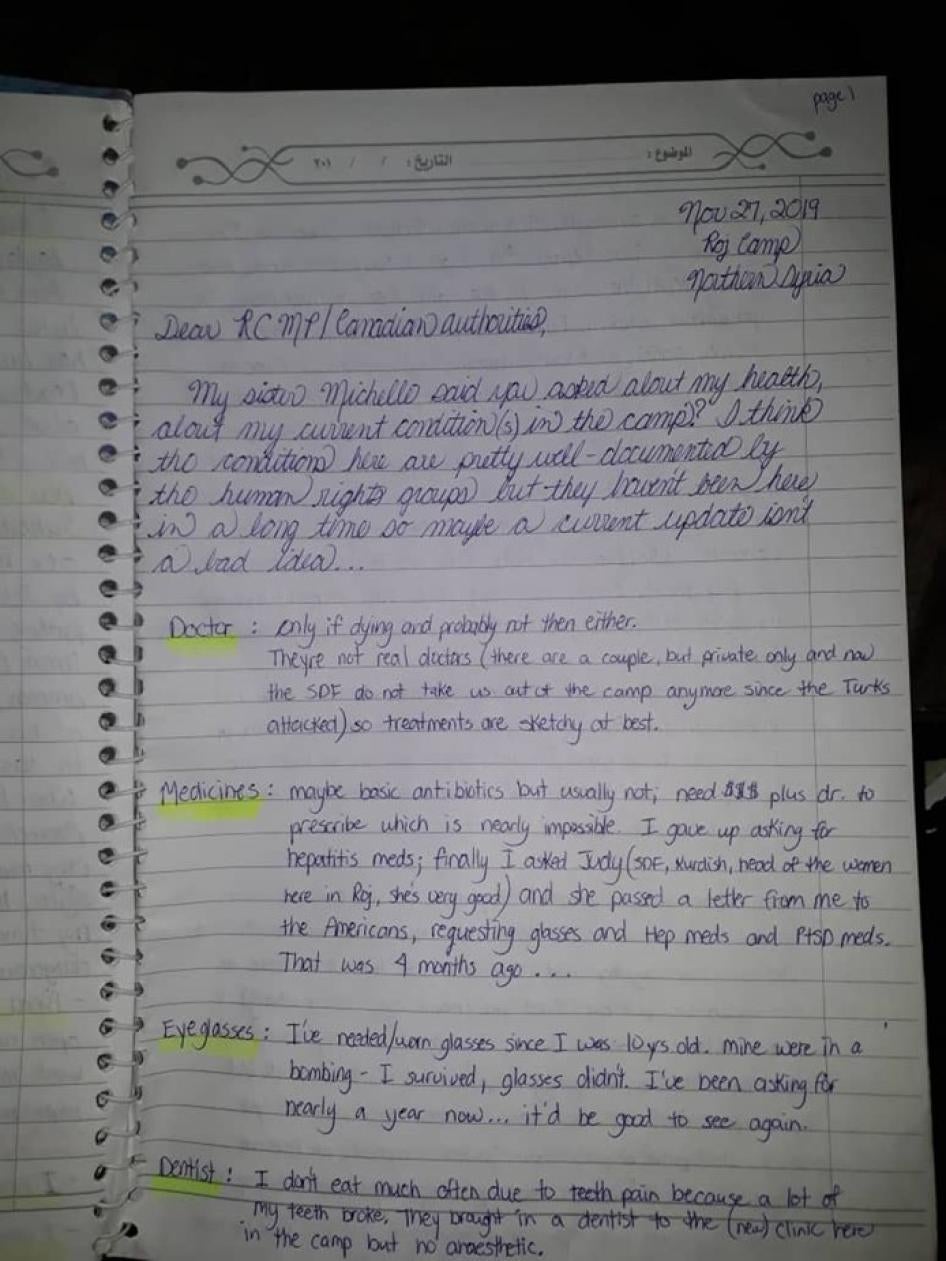 page 1
الموضوع : التاريخ : / / ٢٠١
Nov 27, 2019
Roj Camp
Northern Syria
Dear RCMP/Canadian authorities,
My sister Michelle said you asked about my health,
about my current condition(s) in the camp? I think
the conditions here are pretty well-documented by
the human rights groups but they haven't been here
in a long time so maybe a current update isn't
a bad idea...
Doctor : only if dying and probably not then either.
They're not real doctors (there are a couple, but private only and now
the SDF do not take us out of the camp anymore since the Turks
attacked) so treatments are sketchy at best.
Medicines : maybe basic antibiotics but usually not; need $$$ plus dr. to
prescribe which is nearly impossible. I gave up asking for
hepatitis meds; finally I asked Judy (SDF, Kurdish, head of the women
here in Roj, she's very good) and she passed a letter from me to
the Americans, requesting glasses and Hep meds and PTSD meds.
That was 4 months ago ...
Eyeglasses : I've needed/worn glasses since I was 10 ys old. mine were in a
bombing - I survived, glasses didn't. I've been asking for
nearly a year now... it'd be good to see again.
Dentist : I don't eat much often due to teeth pain because a lot of
my teeth broke. They brought in a dentist to the (new) clinic here
in the camp but no anaesthetic.